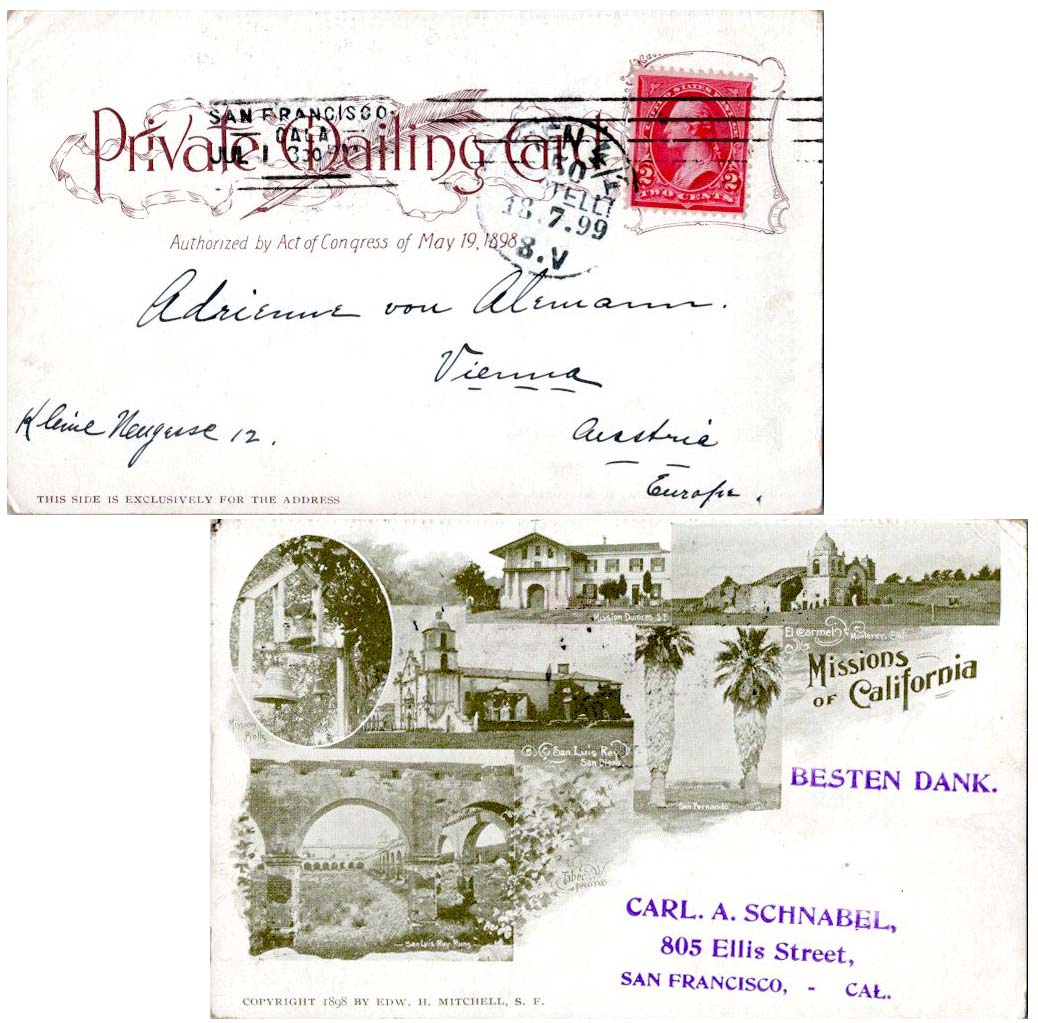 Private Mailing Card
SAN FRANCISCO
CALA
JUL 1
18.7.99
8.V
UNITED STATES
2 2
TWO CENTS
Authorized by Act of Congress of May 19, 1898
Adrienne von Alemann.
Vienna
Kleine Neugasse 12.
Austria
Europe.
THIS SIDE IS EXCLUSIVELY FOR THE ADDRESS
Mission Dolores, S.F.
El Carmel
Monterey, Cal.
MISSIONS
OF CALIFORNIA
Mission
Bells
San Luis Rey
San Diego
San Fernando
BESTEN DANK.
Taber
PHOTOS
San Luis Rey Ruins
CARL. A. SCHNABEL,
805 Ellis Street,
SAN FRANCISCO, - CAL.
COPYRIGHT 1898 BY EDW. H. MITCHELL, S. F.